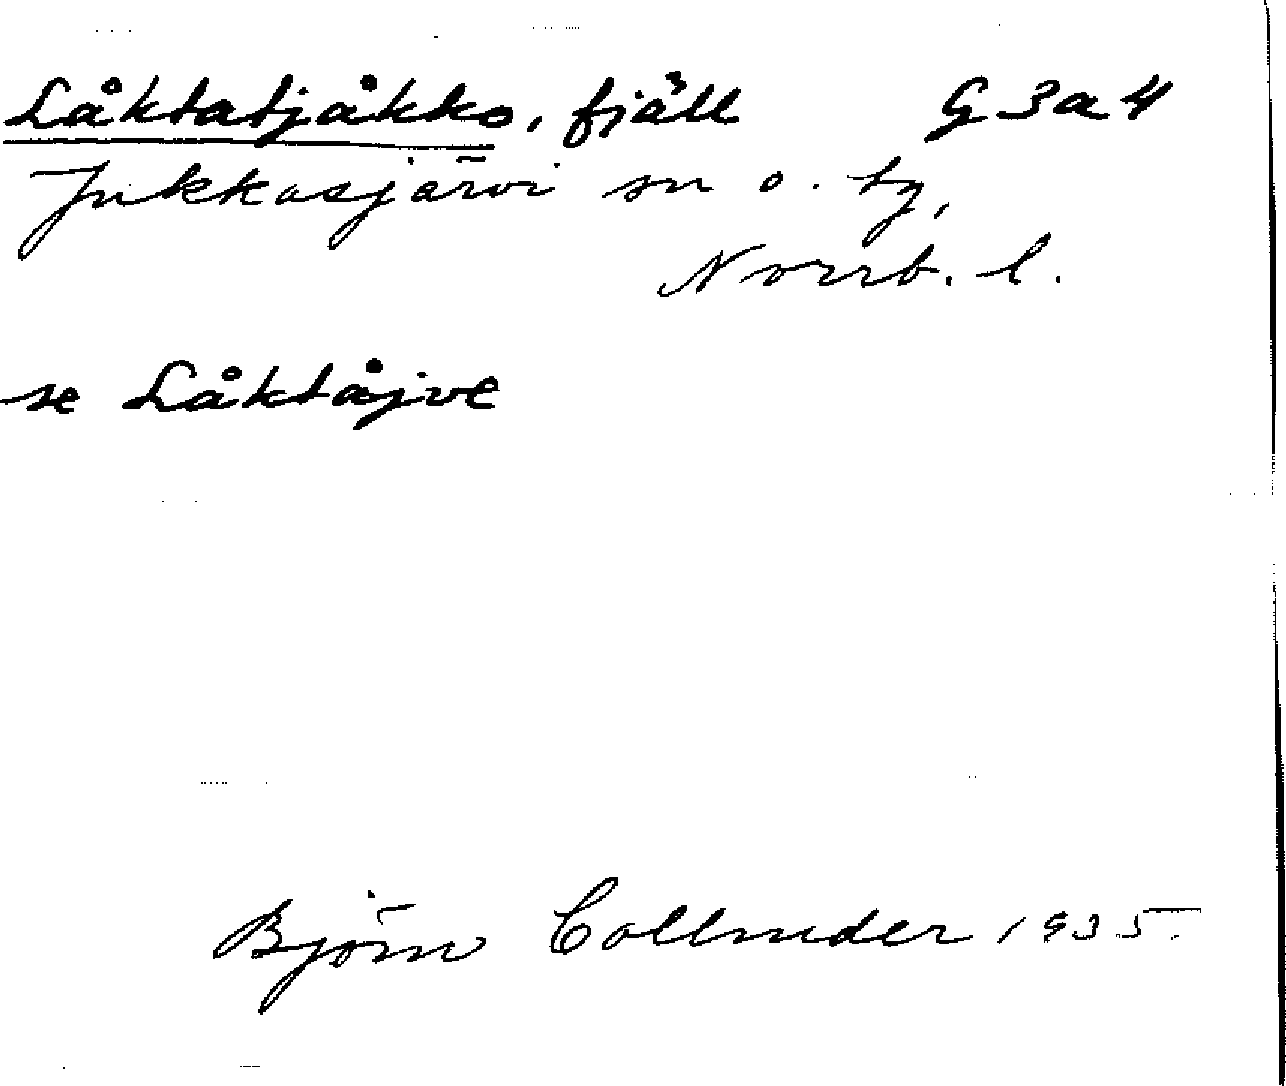 Låktatjåkko, fjäll G 3a4
Jukkasjärvi sn o. tg,
Norrb. l.
se Låktåjve
Björn Collinder 1935.